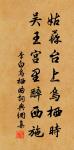 姑蘇台上烏棲時
吳王宮里醉西施
李白烏棲曲詩典網集